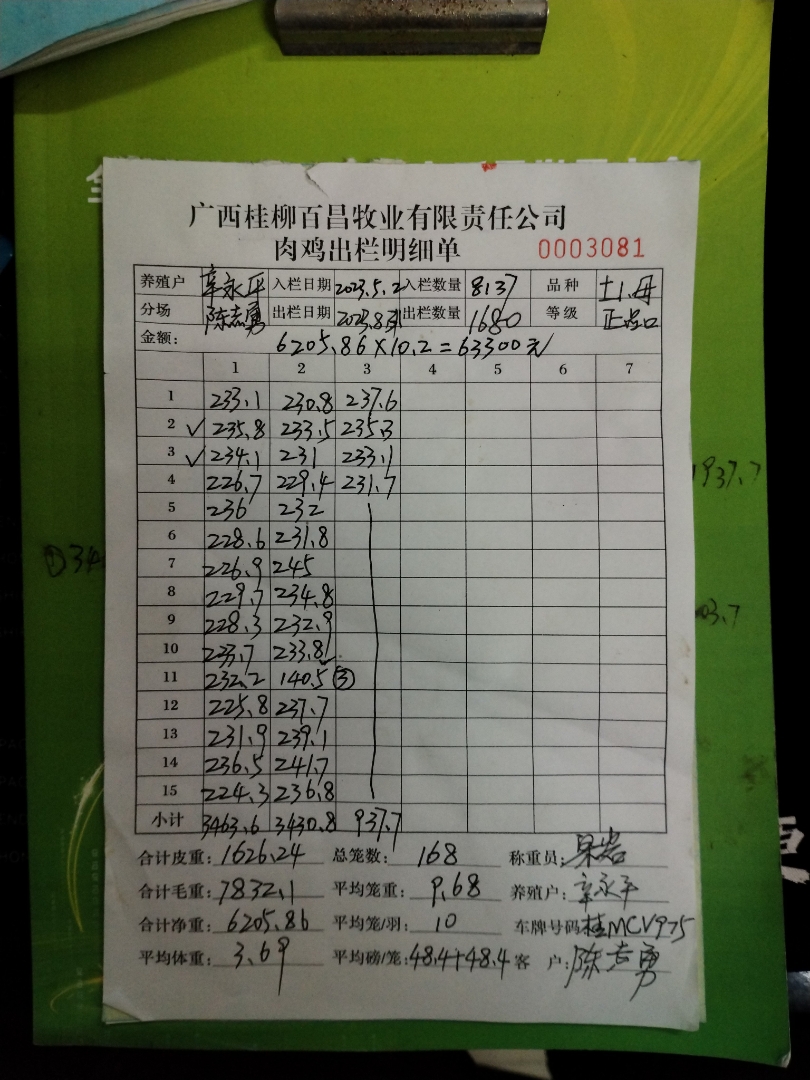 广西桂柳百昌牧业有限责任公司
肉鸡出栏明细单 0003081
养殖户 辛永平 入栏日期 2023.5.2 入栏数量 8137 品种 土1.母
分场 陈志勇 出栏日期 2023.8.31 出栏数量 1680 等级 正品
金额: 6205.86×10.2=63300元
1 2 3 4 5 6 7
1 233.1 230.8 237.6
2 ✓ 235.8 233.5 235.3
3 ✓ 234.1 231 233.1
4 226.7 229.4 231.7
5 236 232
6 228.6 231.8
7 226.9 245
8 229.7 234.8
9 228.3 232.9
10 233.7 233.8
11 232.2 140.5 ③
12 225.8 237.7
13 231.9 239.1
14 236.5 241.7
15 224.3 236.8
小计 3463.6 3430.8 937.7
合计皮重: 1626.24 总笼数: 168 称重员:
合计毛重: 7832.1 平均笼重: 9.68 养殖户: 辛永平
合计净重: 6205.86 平均笼/羽: 10 车牌号码 桂MCV975
平均体重: 3.69 平均磅/笼: 48.4+48.4 客户: 陈志勇
937.7